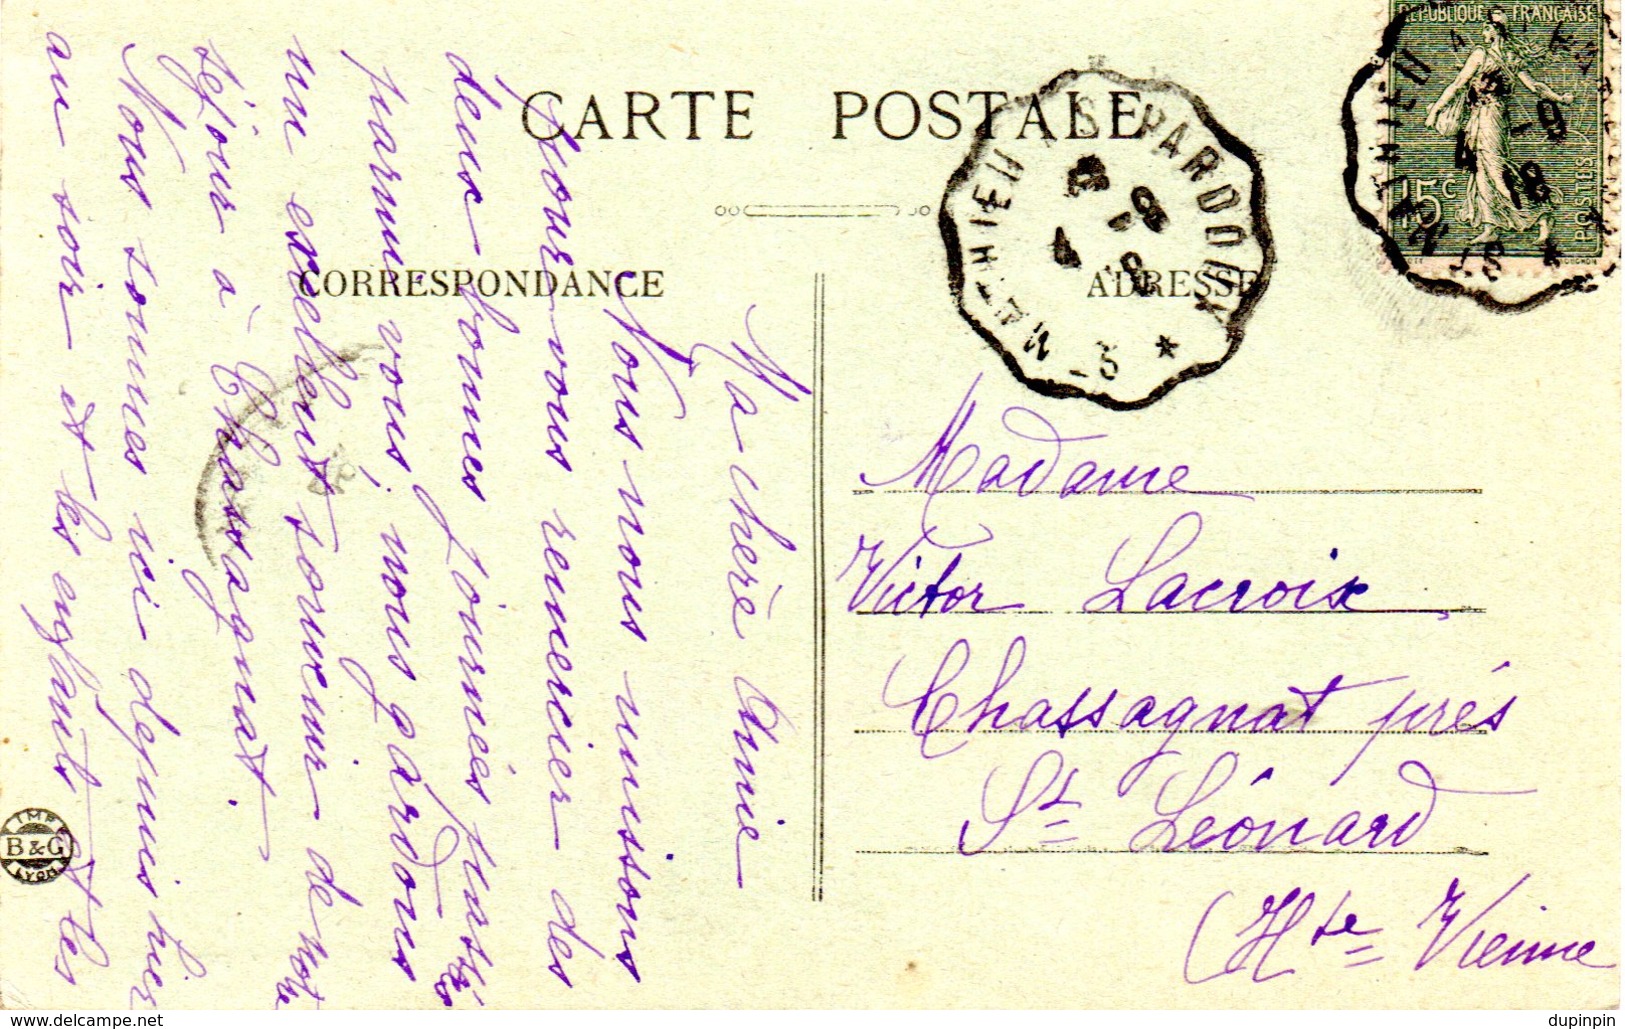 CARTE POSTALE
CORRESPONDANCE
ADRESSE
REPUBLIQUE FRANÇAISE
15c
POSTES
Ma chère Amie
Nous nous unissons
pour vous remercier des
deux bonnes journées passées
parmi vous, nous gardons
un excellent souvenir de notre
séjour à Chassagnat.
Nous sommes ici depuis hier
au soir et les enfants et les
Madame
Victor Lacroix
Chassagnat près
St Léonard
(Hte Vienne
ST-MATHIEU A S PARDOUX
4 -9
18
IMP
B & G
LYON
www.delcampe.net
dupinpin